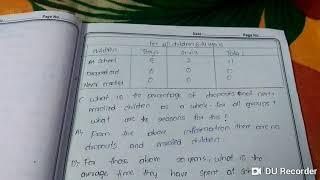 Page No. Date: Page No.
For all children & all years
Children Boys Girls Total
At school 9 2 11
Dropped out 0 0 0
Never enrolled 0 0 0
what is the percentage of dropouts and never
enrolled children as a whole for all groups &
what are the reasons for this?
A) From the above information there are no
dropouts and enrolled children
For those above 20 years, what is the
average time they have spent at school
DU Recorder